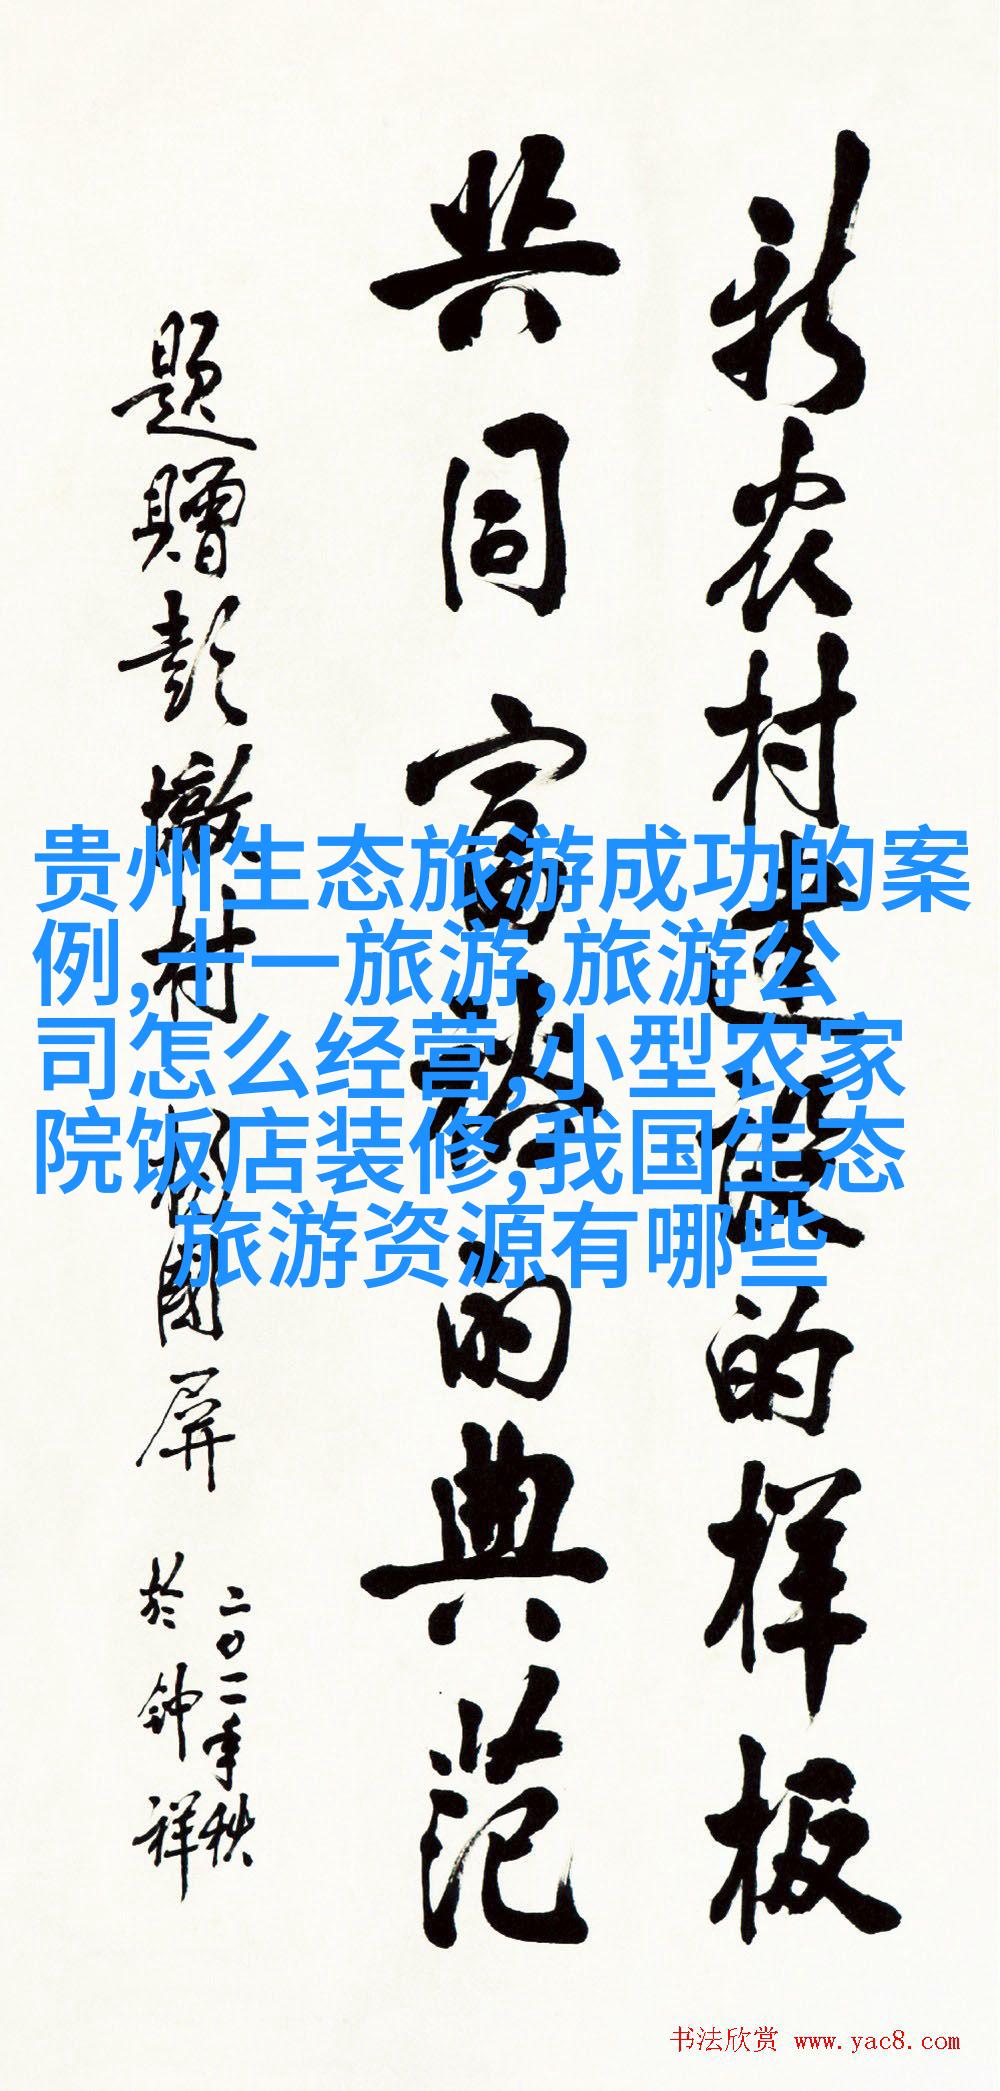 新农村建设的样板
共同富裕的典范
题赠彭墩村 胡国屏
二〇一一年秋
於钟祥
贵州生态旅游成功的案
例,十一旅游,旅游公
司怎么经营,小型农家
院饭店装修,我国生态
旅游资源有哪些
书法欣赏 www.yac8.com